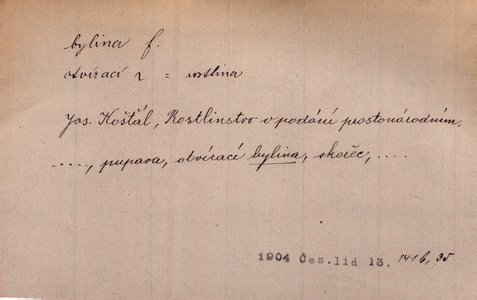 bylina f.
otvírací ~ = rostlina
Jos. Košťál, Rostlinstvo v podání prostonárodním.
....., pupava, otvírací bylina, skočec, ....
1904 Čes. lid 13. 141b, 35